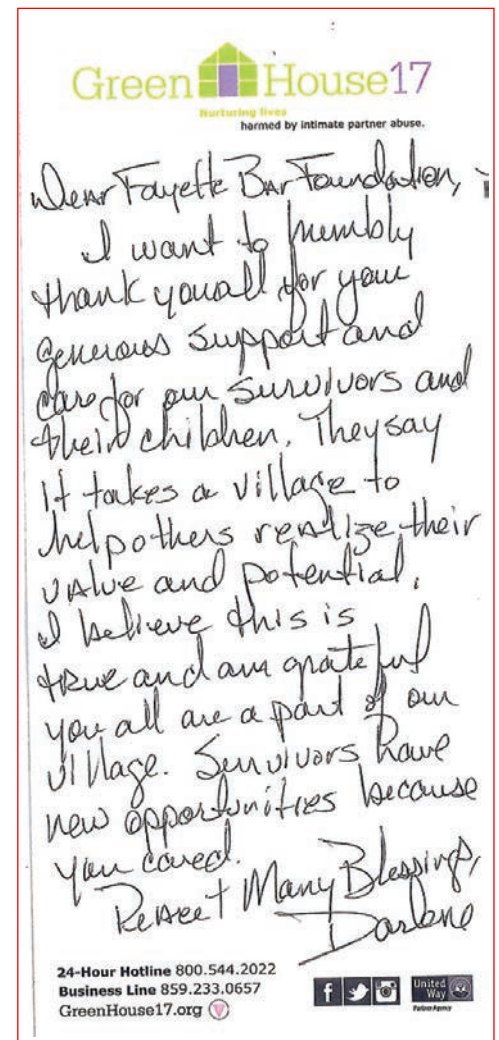 Green House17
Nurturing lives
harmed by intimate partner abuse.
Dear Fayette Bar Foundation,
I want to humbly
thank you all for your
generous support and
care for our survivors and
their children. They say
it takes a village to
help others realize their
value and potential.
I believe this is
true and am grateful
you all are a part of our
village. Survivors have
new opportunities because
you cared.
Many Blessings,
Darlene
24-Hour Hotline 800.544.2022
Business Line 859.233.0657
GreenHouse17.org
United
Way
Partner Agency